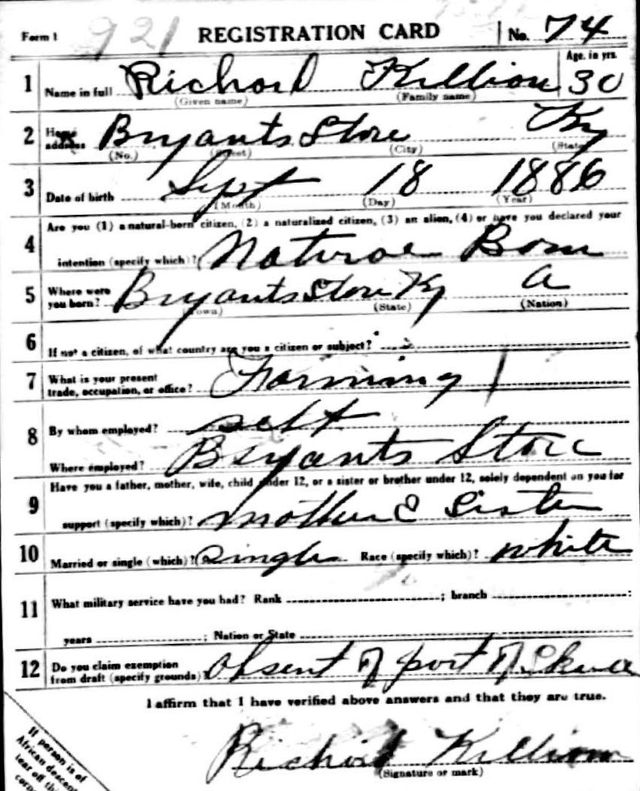 Form 1 921 REGISTRATION CARD No. 74
1 Name in full Richard Killion Age, in yrs. 30
(Given name) (Family name)
2 Home address Bryants Store Ky
(No.) (Street) (City) (State)
3 Date of birth Sept 18 1886
(Month) (Day) (Year)
Are you (1) a natural-born citizen, (2) a naturalized citizen, (3) an alien, (4) or have you declared your
4 intention (specify which)? Natural Born
5 Where were you born? Bryants Store Ky A
(Town) (State) (Nation)
6 If not a citizen, of what country are you a citizen or subject?
7 What is your present trade, occupation, or office? Farming
8 By whom employed? self
Where employed? Bryants Store
Have you a father, mother, wife, child under 12, or a sister or brother under 12, solely dependent on you for
9 support (specify which)? mother & Sister
10 Married or single (which)? Single Race (specify which)? white
11 What military service have you had? Rank ; branch
years ; Nation or State
12 Do you claim exemption from draft (specify grounds)? absent of part of
I affirm that I have verified above answers and that they are true.
Richard Killion
(Signature or mark)
If person is of
African descent
tear off the